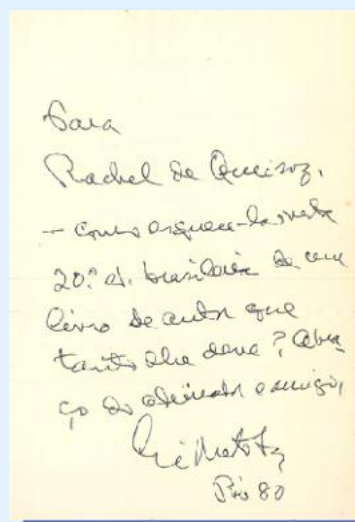 Para
Rachel de Queiroz,
— como esquecê-la, nesta
20.ª ed. brasileira de um
livro de autor que
tanto lhe deve? Abra-
ço do admirador e amigo,
Rio 80